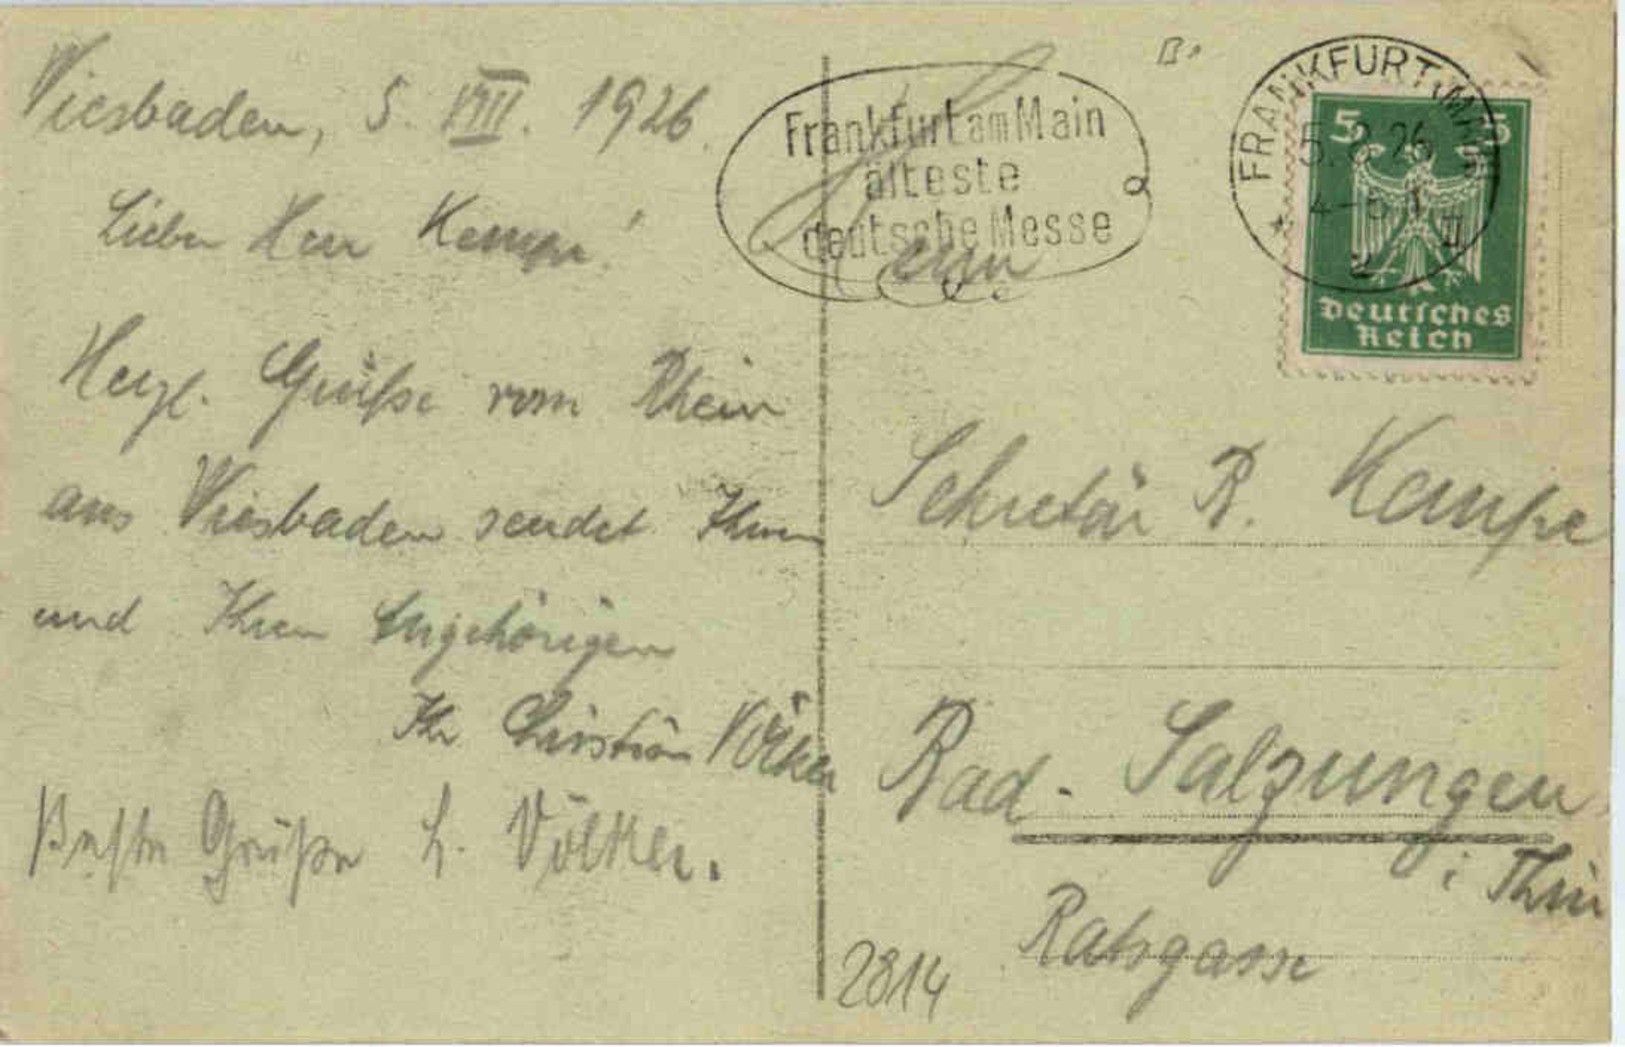 Wiesbaden, 5. VIII. 1926.
Lieber Herr Kempe!
Herzl. Grüße vom Rhein
aus Wiesbaden sendet Ihnen
und Ihren Angehörigen
Ihr Christian Völker
Beste Grüße L. Völker.
Frankfurt am Main
älteste
deutsche Messe
Herrn
FRANKFURT (MAIN)
5.8.26
5 5
Deutsches
Reich
Sekretär R. Kempe
Bad-Salzungen
i. Thür
Ratsgasse
2814